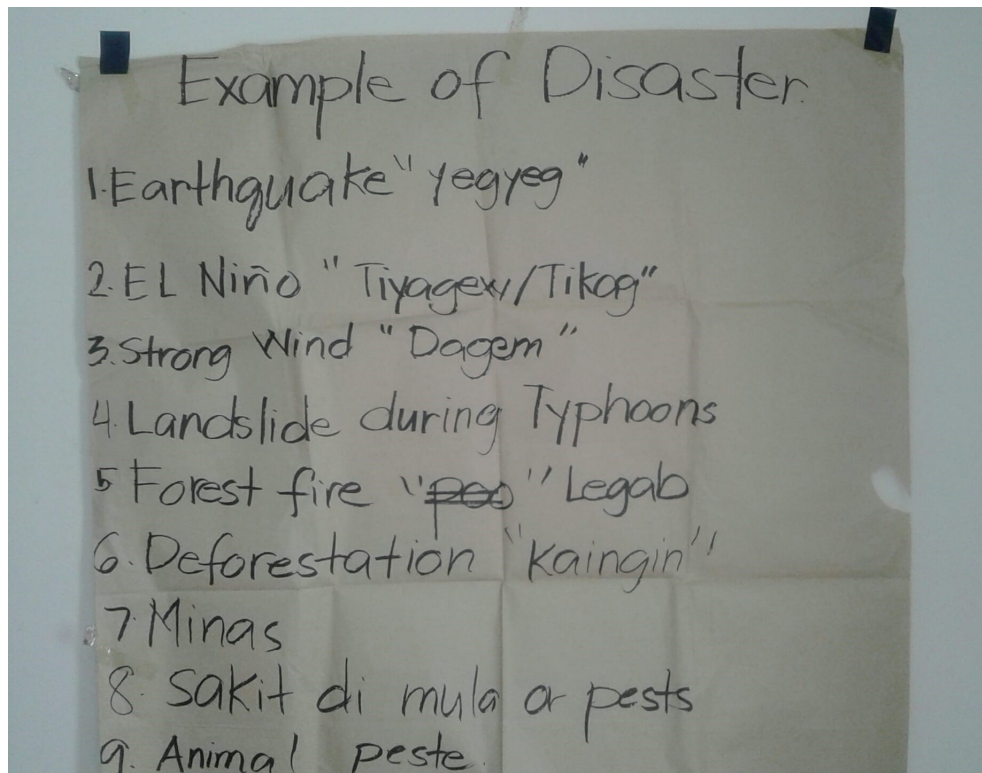 Example of Disaster.
1. Earthquake "yegyeg"
2. EL Niño "Tiyagew/Tikag"
3. Strong Wind "Dagem"
4. Landslide during Typhoons
5 Forest fire "poo" Legab
6. Deforestation "Kaingin"
7 Minas
8. Sakit di mula or pests
9. Animal peste.